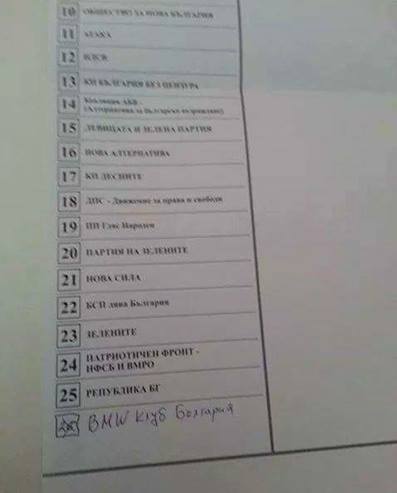 10 ОБЩЕСТВО ЗА НОВА БЪЛГАРИЯ
11 АТАКА
12
13 КП БЪЛГАРИЯ БЕЗ ЦЕНЗУРА
14 Коалиция АБВ -
(Алтернатива за българско възраждане)
15 ЛЕВИЦАТА И ЗЕЛЕНА ПАРТИЯ
16 НОВА АЛТЕРНАТИВА
17 КП ДЕСНИТЕ
18 ДПС - Движение за права и свободи
19 ПП Глас Народен
20 ПАРТИЯ НА ЗЕЛЕНИТЕ
21 НОВА СИЛА
22 БСП лява България
23 ЗЕЛЕНИТЕ
24 ПАТРИОТИЧЕН ФРОНТ -
НФСБ И ВМРО
25 РЕПУБЛИКА БГ
BMW Клуб България